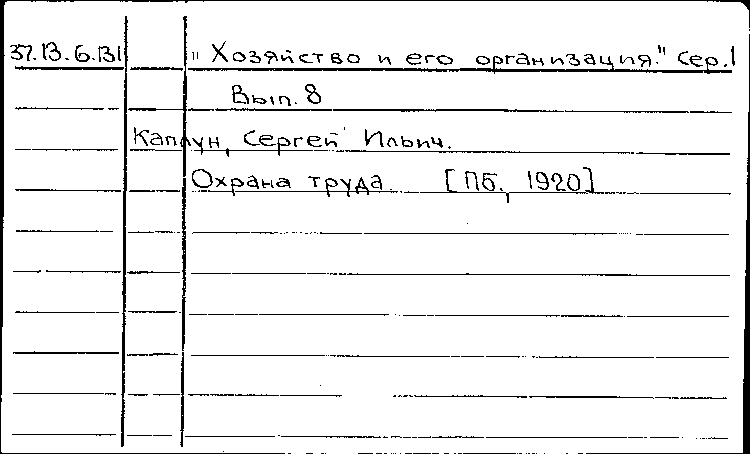 37.13.6.131 "Хозяйство и его организация." Сер.1
Вып. 8
Каплун, Сергей Ильич.
Охрана труда [Пб., 1920]